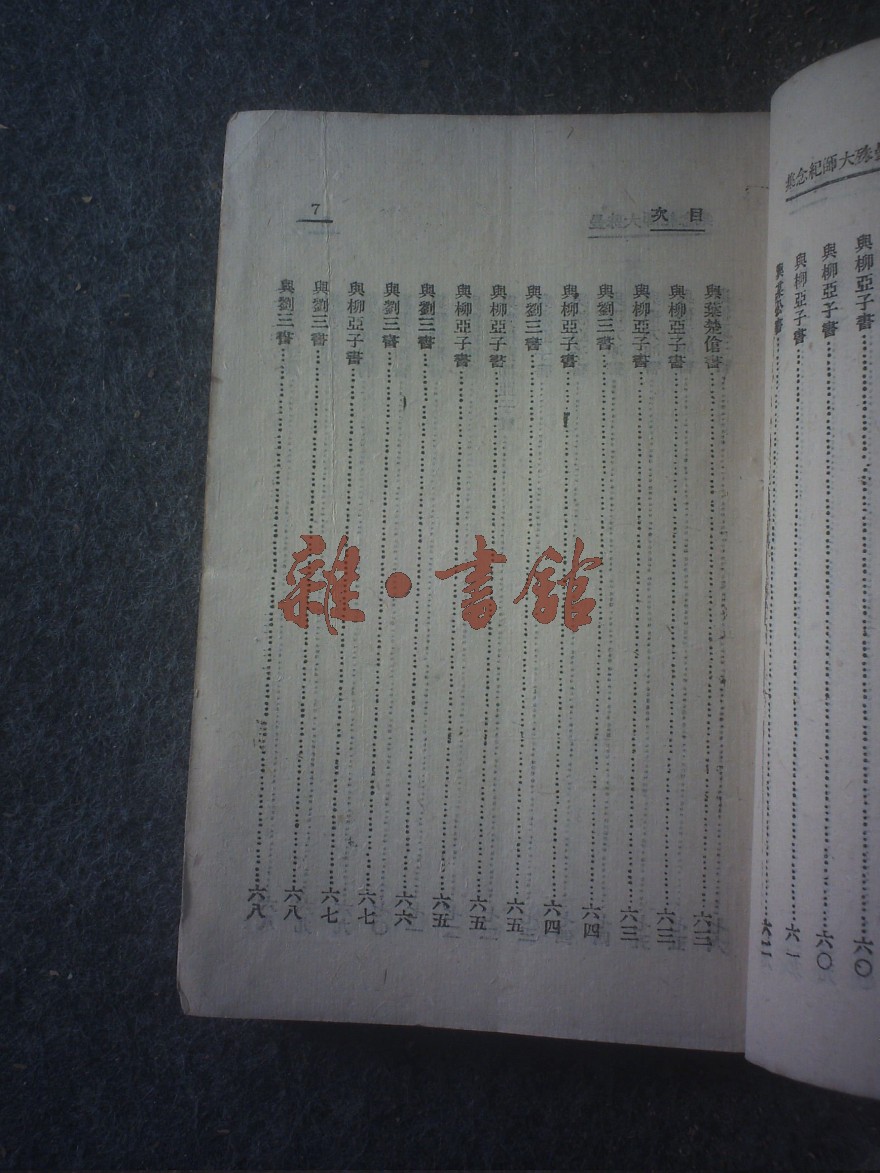 曼殊大師紀念集
與柳亞子書……六〇
與柳亞子書……六〇
與柳亞子書……六一
與某公書……六二
目次
7
與葉楚傖書……六二
與柳亞子書……六三
與柳亞子書……六三
與劉三書……六四
與柳亞子書……六四
與劉三書……六五
與柳亞子書……六五
與柳亞子書……六五
與劉三書……六六
與劉三書……六七
與柳亞子書……六七
與劉三書……六八
與劉三書……六八
雜·書館